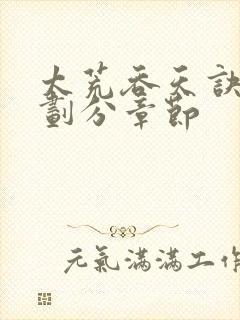 大荒吞天訣
劃分章節
元氣滿滿工作